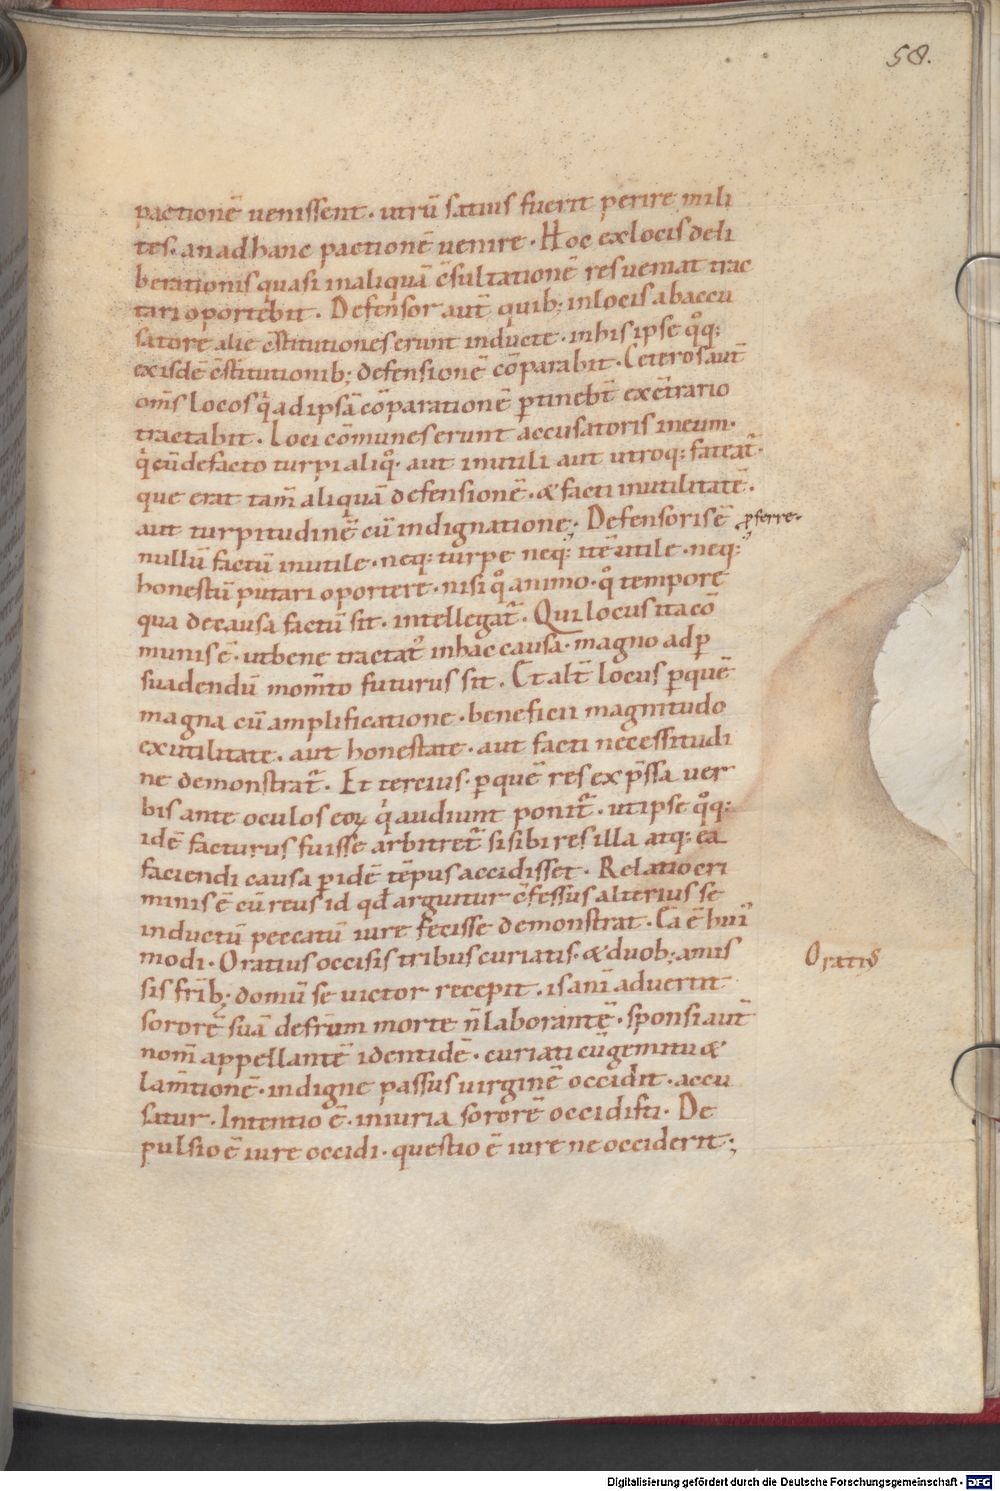 58.
pactionē uenissent. utrū satius fuerit perire mili
tes. an ad hanc pactionē uenire. Hoc ex locis deli
berationis quasi in aliquā c̄sultationē res ueniat trac
tari oportebit. Defensor aut̄ quib; in locis ab accu
satore alie c̄stitutiones erunt inducte. in his ipse qͦq;
ex isdē c̄stitutionib; defensionē cōparabit. Ceteros aut̄
om̄s locos q̇ ad ipsā cōparationē ꝑtinebt̄ ex c̄trario
tractabit. Loci cōmunes erunt accusatoris in eum.
q̇ cū de facto turpi aliqͦ. aut inutili aut utroq; fateat᷑.
que erat tam̄ aliquā defensionē. & facti inutilitatē.
aut turpitudinē cū indignatione; Defensoris ē ꝓferre.
nullū factū inutile. neq; turpe neq; itē utile. neq;
honestū putari oportere. nisi qͦ animo. qͦ tempore
qua de causa factū sit. intellegat᷑. Qui locus ita cō
munis ē. ut bene tractat᷑ in hac causa. magno ad ꝑ
suadendū mom̄to futurus sit. Et alt̄ locus ꝑ quē
magna cū amplificatione. beneficii magnitudo
ex utilitate. aut honestate. aut facti necessitudi
ne demonstrat᷑. Et tercius. ꝑ quē res ex p̄ssa uer
bis ante oculos eoꝝ q̇ audiunt ponit᷑. ut ipse qͦq;
idē facturus fuisse arbitret᷑ si sibi res illa atq; ea
faciendi causa ꝑ idē tēpus accidisset. Relatio cri
minis ē cū reus id qđ arguitur c̄fessus alterius se
inductū peccatū iure fecisse demonstrat. Ea ē hui᷒
modi. Oratius occisis tribus curiatis. & duob; amis
Oratiꝯ
sis frīb; domū se uictor recepit. is anī aduertit
sororē suā de frūm morte n̄ laborantē. sponsi aut̄
nom̄ appellantē identidē. curiati cū gemitu &
lam̄tionē. indigne passus uirginē occidit. accu
satur. Intentio ē. iniuria sororē occidisti. De
pulsio ē iure occidi. questio ē iure ne occiderit;
Digitalisierung gefördert durch die Deutsche Forschungsgemeinschaft - DFG